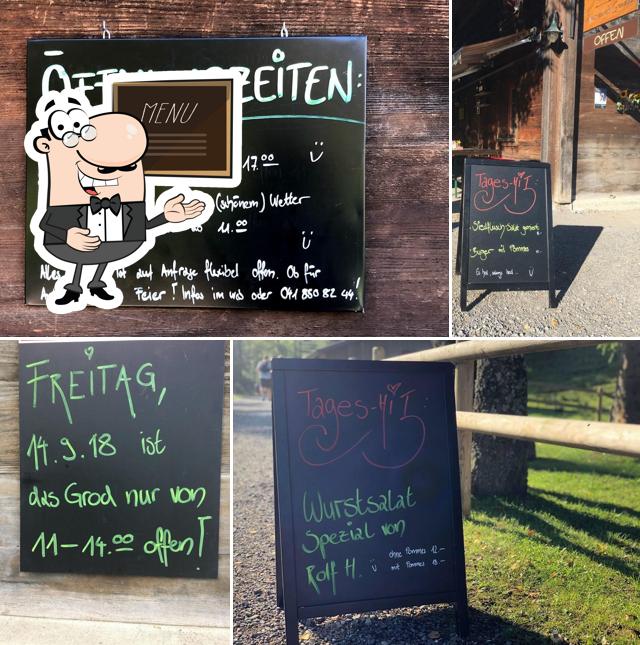 ÖFF ZEITEN:
MENU
17.00
(schönem) Wetter
11.00
auf Anfrage flexibel offen. Ob für
Feier! Infos im uns oder 041 850 82 44!
OFFEN
Tages-Hi I:
Burger mit Pommes
FREITAG,
14.9.18 ist
das Grod nur von
11-14.00 offen!
Tages-Hi I:
Wurstsalat
Spezial von
Rolf H.
ohne Pommes 12.-
mit Pommes